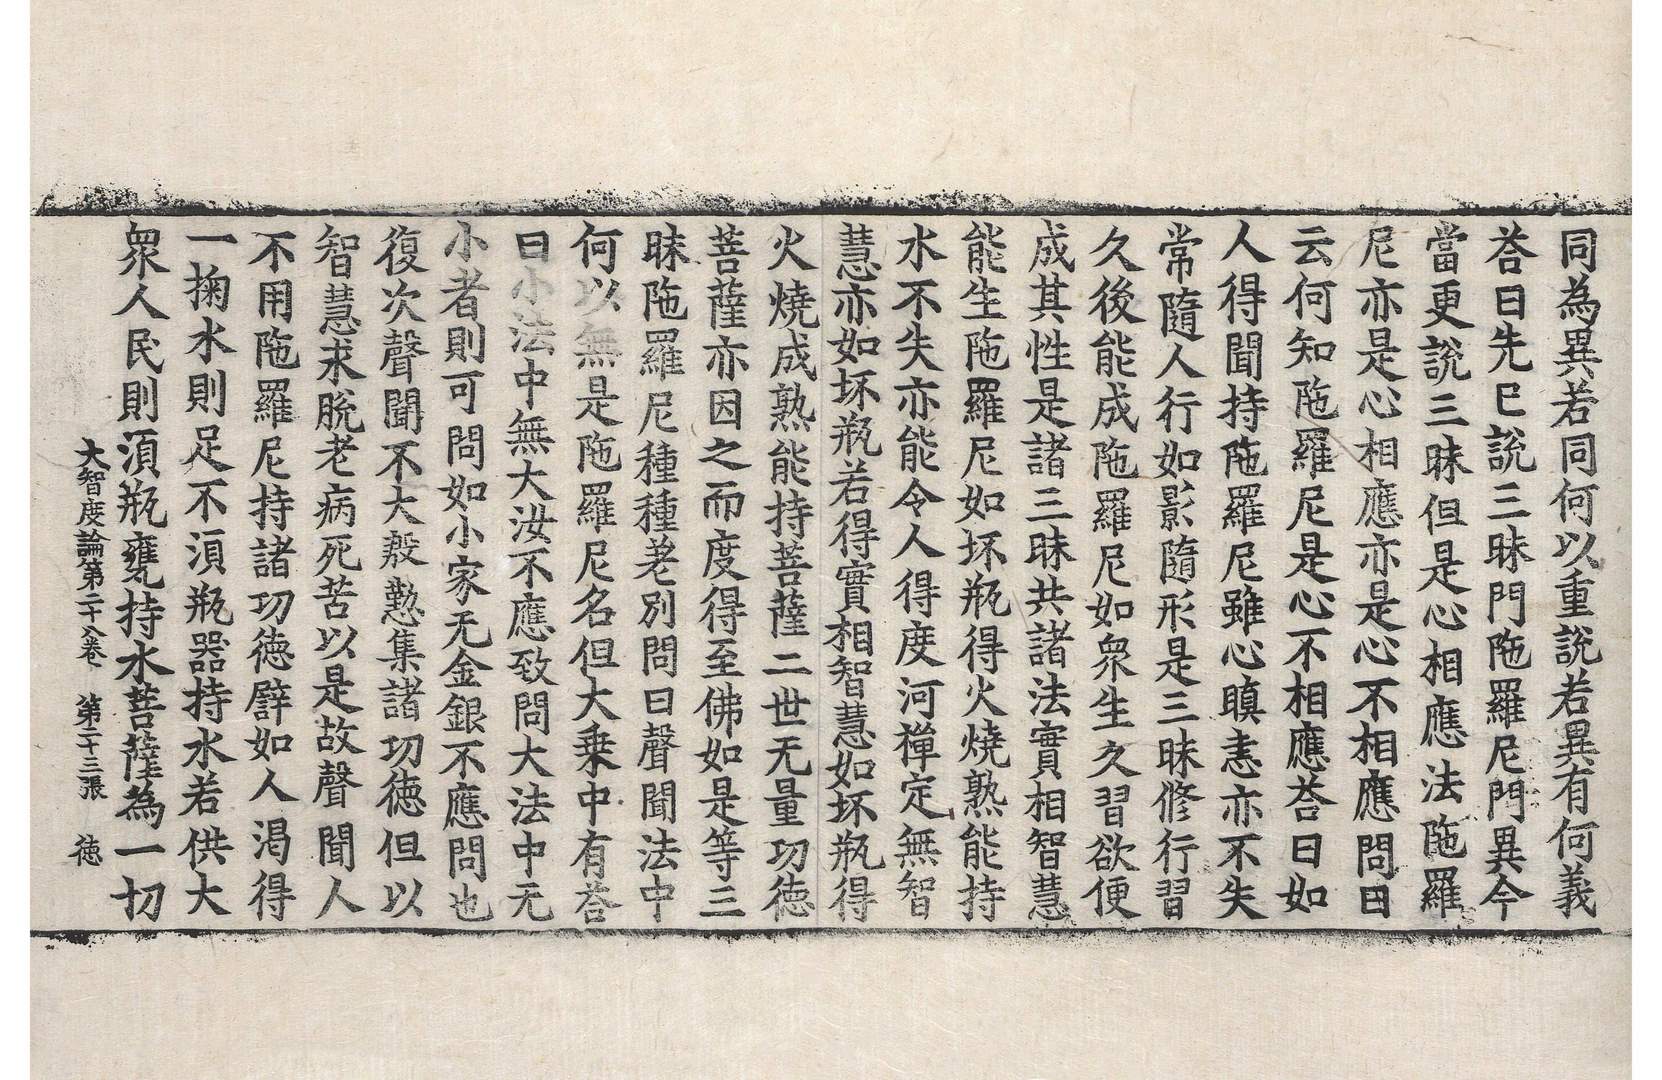 同為異若同何以重說若異有何義
荅曰先已說三昧門陁羅尼門異今
當更說三昧但是心相應法陁羅
尼亦是心相應亦是心不相應問曰
云何知陁羅尼是心不相應荅曰如
人得聞持陁羅尼雖心瞋恚亦不失
常隨人行如影隨形是三昧修行習
久後能成陁羅尼如衆生久習欲便
成其性是諸三昧共諸法實相智慧
能生陁羅尼如坏瓶得火燒熟能持
水不失亦能令人得度河禪定無智
慧亦如坏瓶若得實相智慧如坏瓶得
火燒成熟能持菩薩二世无量功德
菩薩亦因之而度得至佛如是等三
昧陁羅尼種種差別問曰聲聞法中
何以無是陁羅尼名但大乘中有荅
曰小法中無大汝不應致問大法中无
小者則可問如小家无金銀不應問也
復次聲聞不大慇懃集諸功德但以
智慧求脫老病死苦以是故聲聞人
不用陁羅尼持諸功德譬如人渴得
一掬水則足不湏瓶器持水若供大
衆人民則湏瓶甕持水菩薩為一切
大智度論第二十八卷 第二十三張 徳